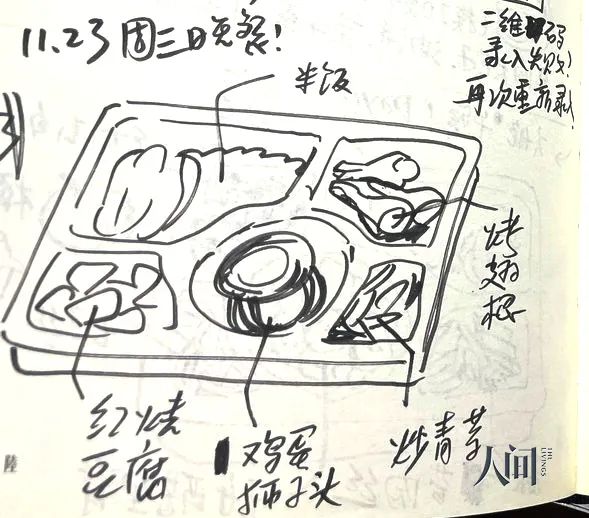 11.23周三晚餐!
二维码
录入失败!
再次重新录!
米饭
烤
翅
根
红烧
豆腐
鸡蛋
狮子头
炒青菜
陸
人间
THE
LIVINGS